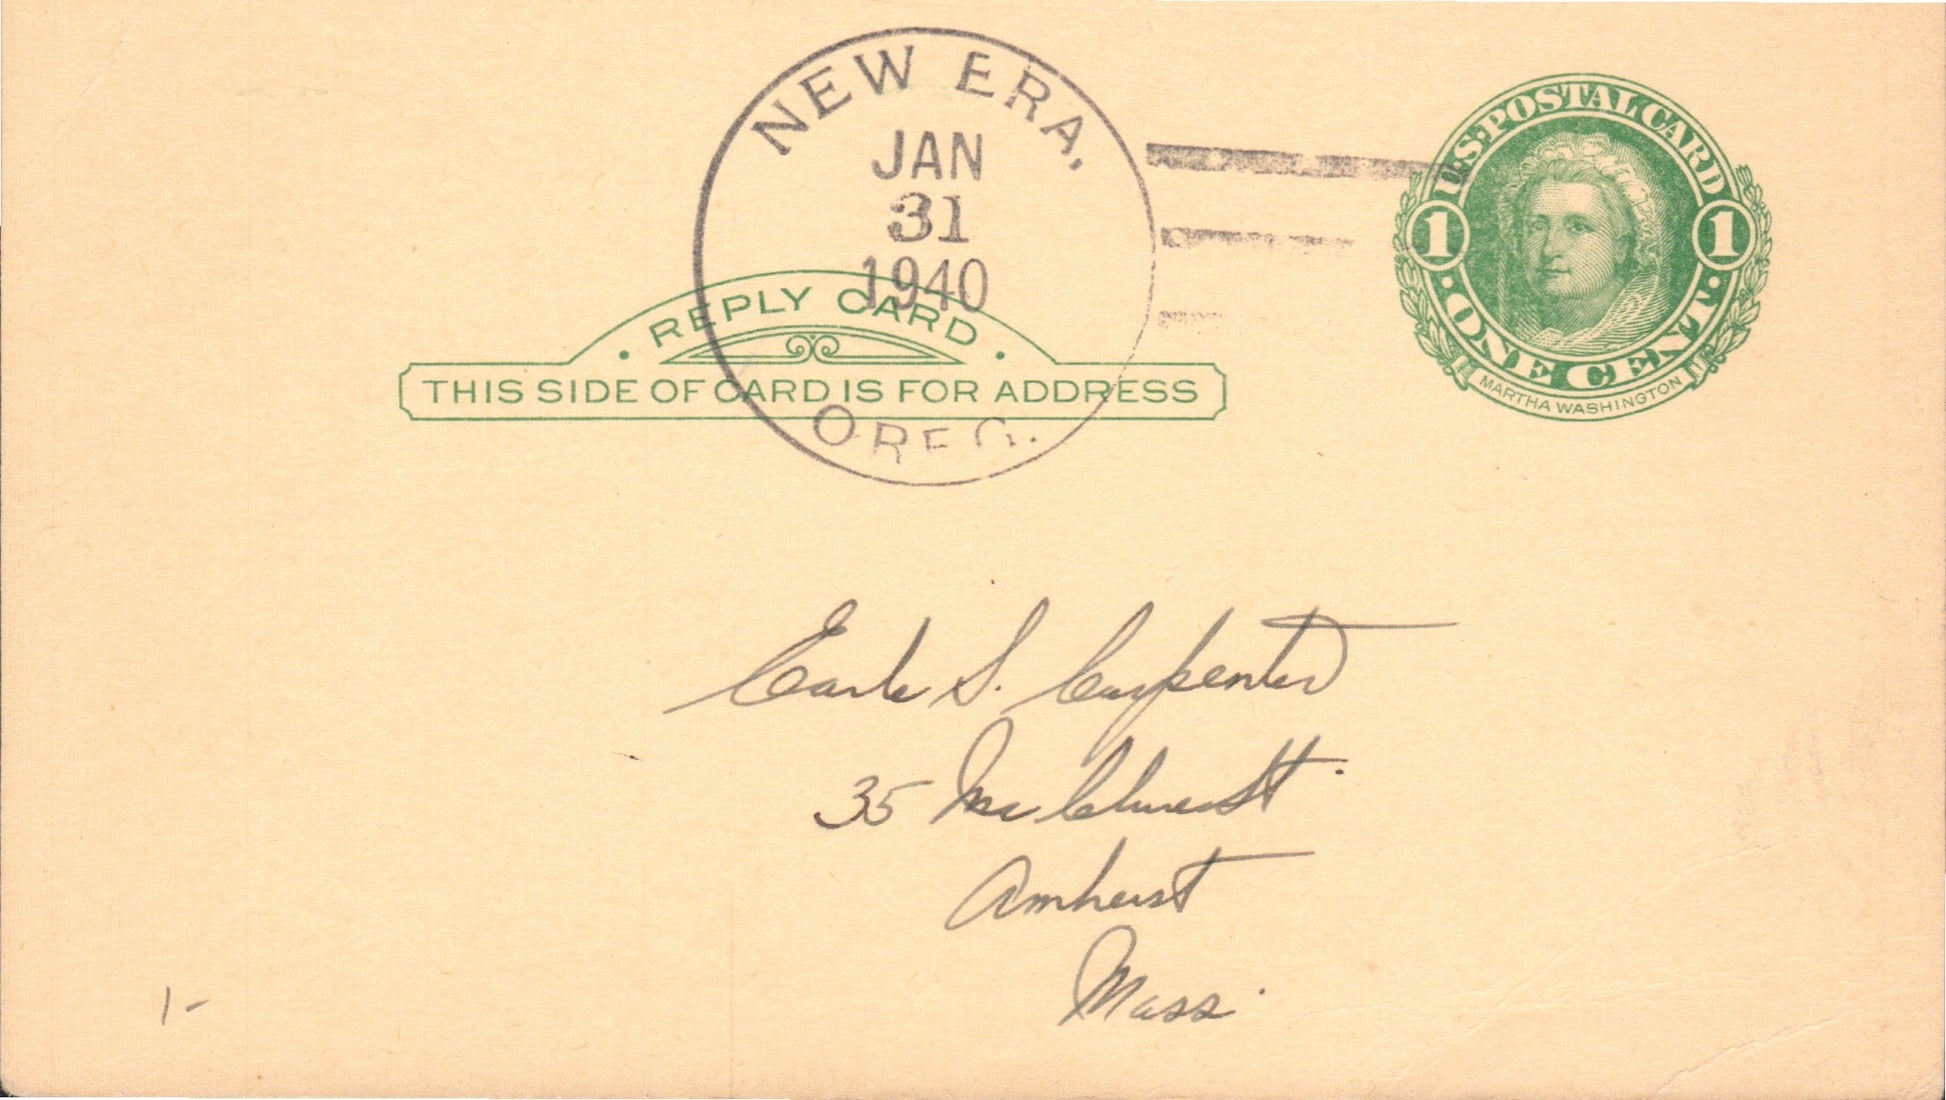 NEW ERA,
JAN
31
1940
OREG.
U.S. POSTAL CARD
1 1
ONE CENT
MARTHA WASHINGTON
REPLY CARD
THIS SIDE OF CARD IS FOR ADDRESS
Earle S. Carpenter
35 McClure St.
Amherst
Mass.
1-